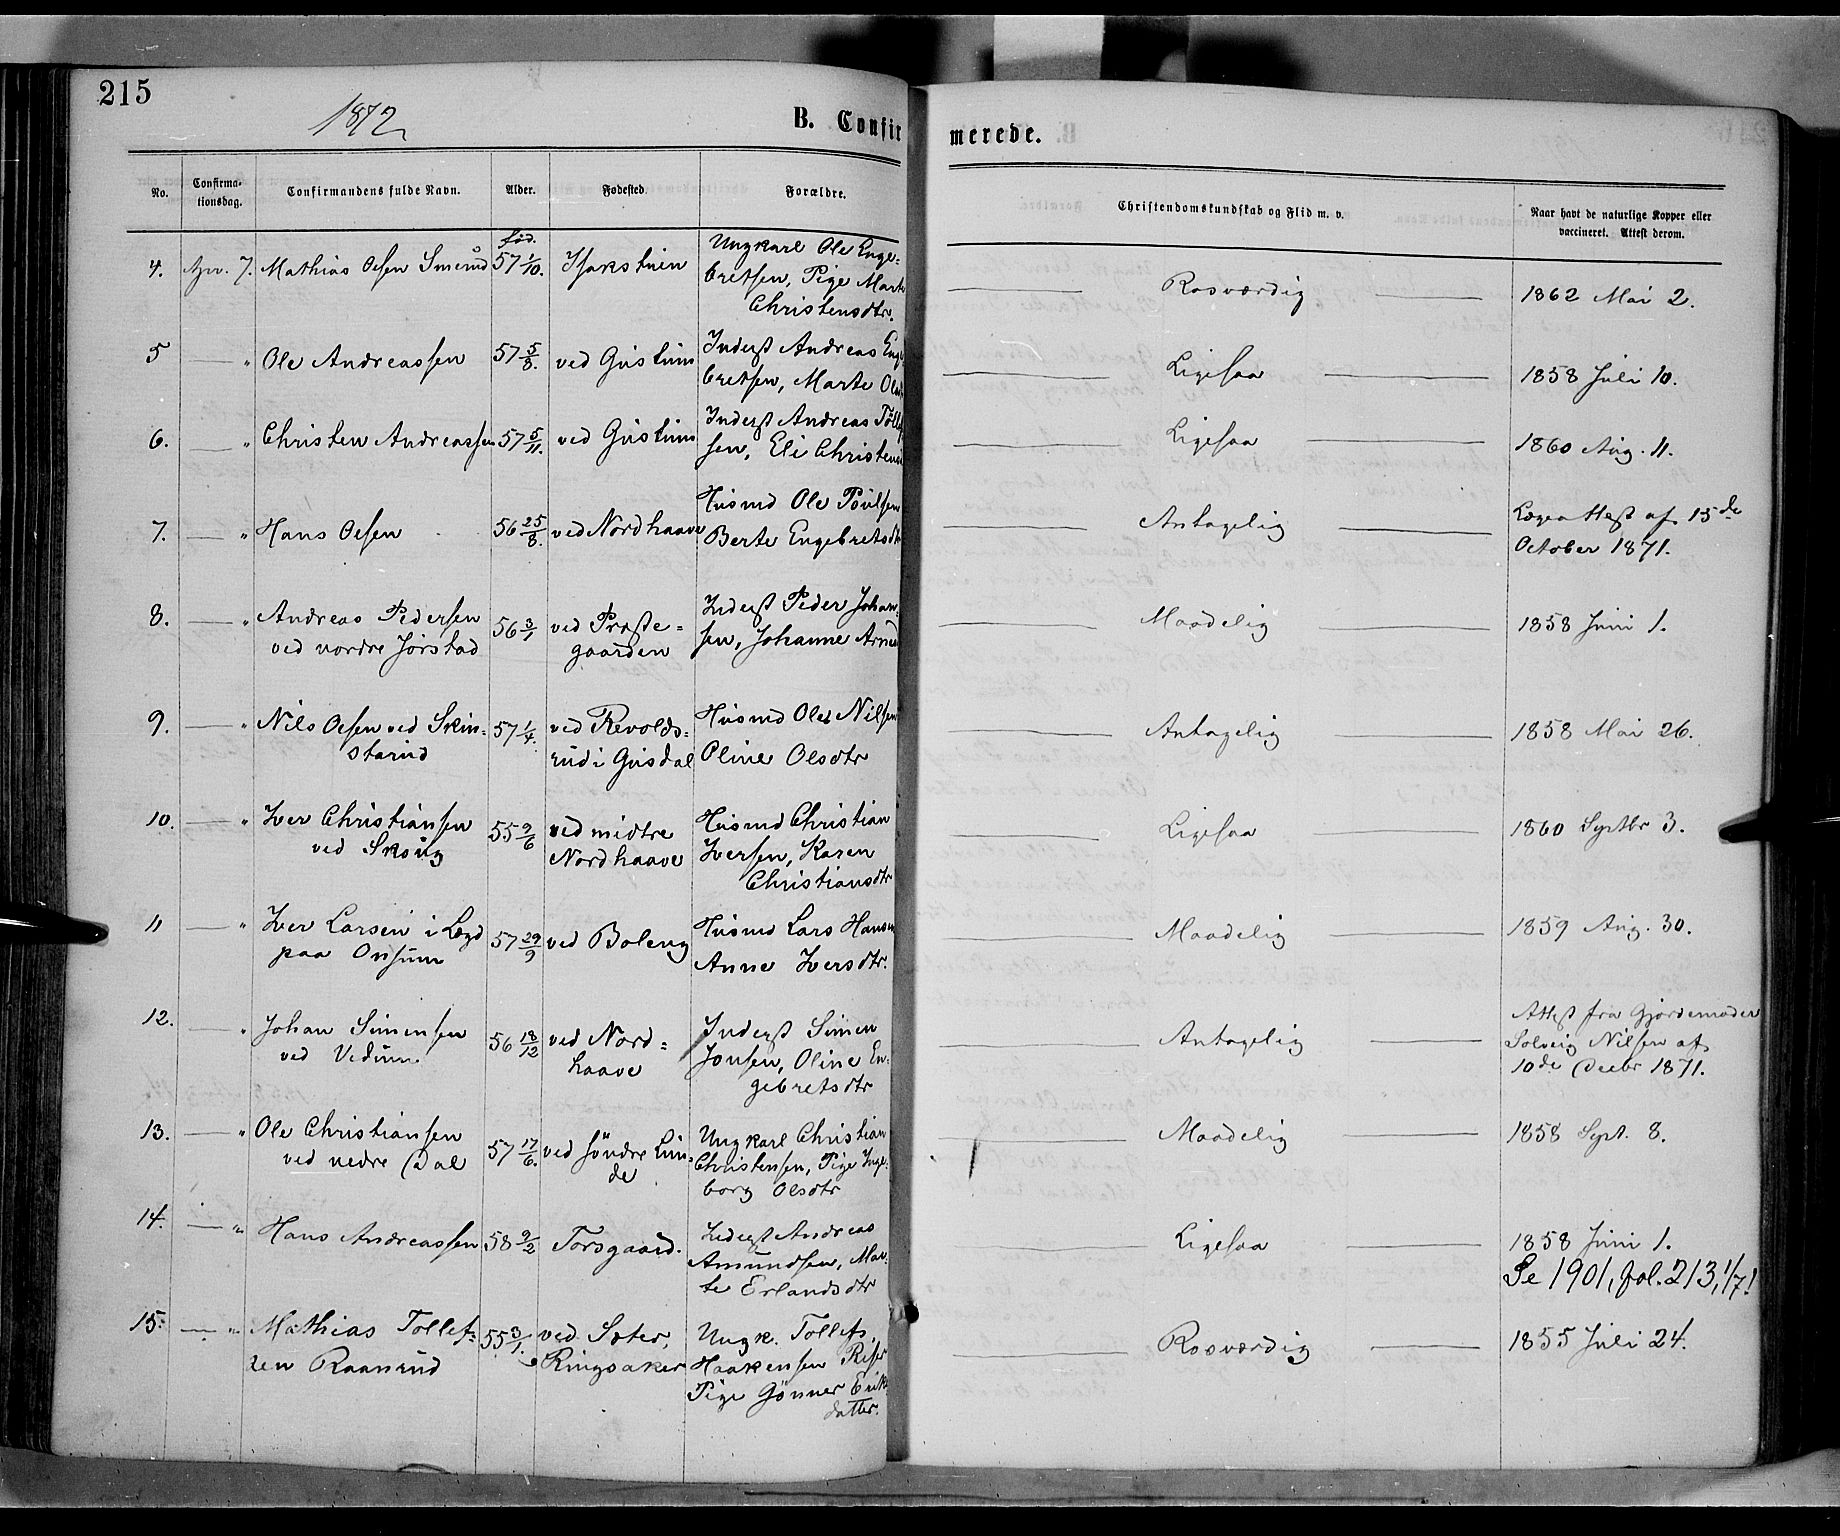 215
1872
B. Confirmerede.
No.
Confirma-
tionsdag.
Confirmandens fulde Navn.
Alder.
Fødested.
Forældre.
Christendomskundskab og Flid m. v.
Naar havt de naturlige Kopper eller
vaccineret. Attest derom.
4. Apr. 7. Mathias Olsen Smerud
fød.
57 1/10.
Isakstuen
Ungkarl Ole Enge-
bretsen, Pige Marte
Christensdtr.
Rosværdig
1862 Mai 2.
5 — " Ole Andreassen
57 5/8.
ved Gustum
Inderst Andreas Enge
bretsen, Marte Ols
Ligesaa
1858 Juli 10.
6. — " Christen Andreassen
57 5/11.
ved Gustum
Inderst Andreas Tollef
sen, Eli Christens
Ligesaa
1860 Aug. 11.
7. — " Hans Olsen
56 25/8.
ved Nordhaave
Husmd Ole Poulsen
Berte Engebretsdtr
Antagelig
Lægeattest af 15de
October 1871.
8. — " Andreas Pedersen
ved nordre Jørstad
56 3/1
ved Præste-
gaarden
Inderst Peder Johan-
sen, Johanne Arne
Maadelig
1858 Juni 1.
9. — " Nils Olsen ved Skin-
starud
57 1/4.
ved Revolds-
rud i Gusdal
Husmd Ole Nilsen
Oline Olsdtr
Antagelig
1858 Mai 26.
10. — " Iver Christiansen
ved Skoug
55 9/6
ved midtre
Nordhaave
Husmd Christian
Iversen, Karen
Christiansdtr
Ligesaa
1860 Septbr 3.
11 — " Iver Larsen i Lægd
paa Onsum
57 29/9
ved Boleng
Husmd Lars Hansen
Anne Iversdtr.
Maadelig
1859 Aug. 30.
12. — " Johan Simensen
ved Vedum
56 18/12
ved Nord-
haave
Inderst Simen
Jonsen, Oline En-
gebretsdtr
Antagelig
Attest fra Gjordemoder
Solveig Nilsen af
10de Decbr 1871.
13. — " Ole Christiansen
ved nedre Dal
57 17/6.
ved søndre Lun-
de
Ungkarl Christian
Christensen, Pige Inge-
borg Olsdtr
Maadelig
1858 Sept. 8.
14. — " Hans Andreassen
58 9/2
Torsgaard.
Inderst Andreas
Amundsen, Mar-
te Erlandsdtr
Ligesaa
1858 Juni 1.
Se 1901, fol. 213, 1/7!
15. — " Mathias Tollef-
sen Raanrud
55 3/1.
ved Sæter,
Ringsaker
Ungk. Tollef
Haakensen
Pige Gønner Eriks
datter.
Rosværdig
1855 Juli 24.